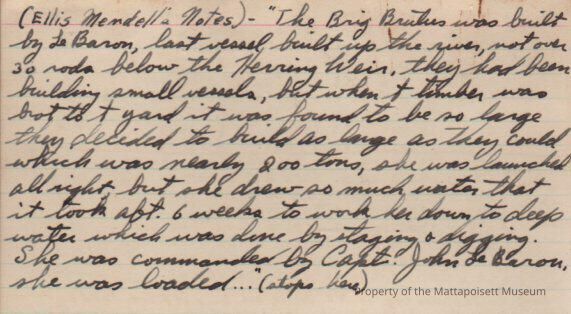 (Ellis Mendell's Notes) - "The Brig Brutus was built
by Le Baron, last vessel built up the river, not over
30 rods below the Herring Weir, they had been
building small vessels, but when t timber was
bot to t yard it was found to be so large
they decided to build as large as they could
which was nearly 200 tons, she was launched
all right, but she drew so much water that
it took abt. 6 weeks to work her down to deep
water which was done by staging & digging.
She was commanded by Capt. John Le Baron,
she was loaded..." (stops here)
Property of the Mattapoisett Museum